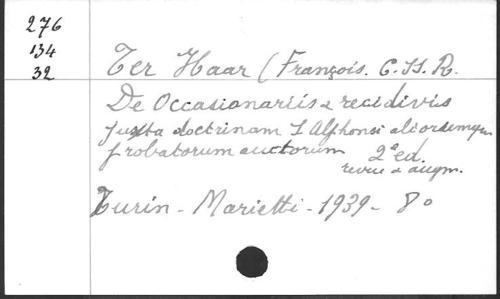 276
134
32
Ter Haar (François. C. SS. R.
De Occasionariis & recidivis
juxta doctrinam S Alphonsi aliorumque
probatorum auctorum 2ª ed.
revue & augm.
Turin - Marietti - 1939 - 8°